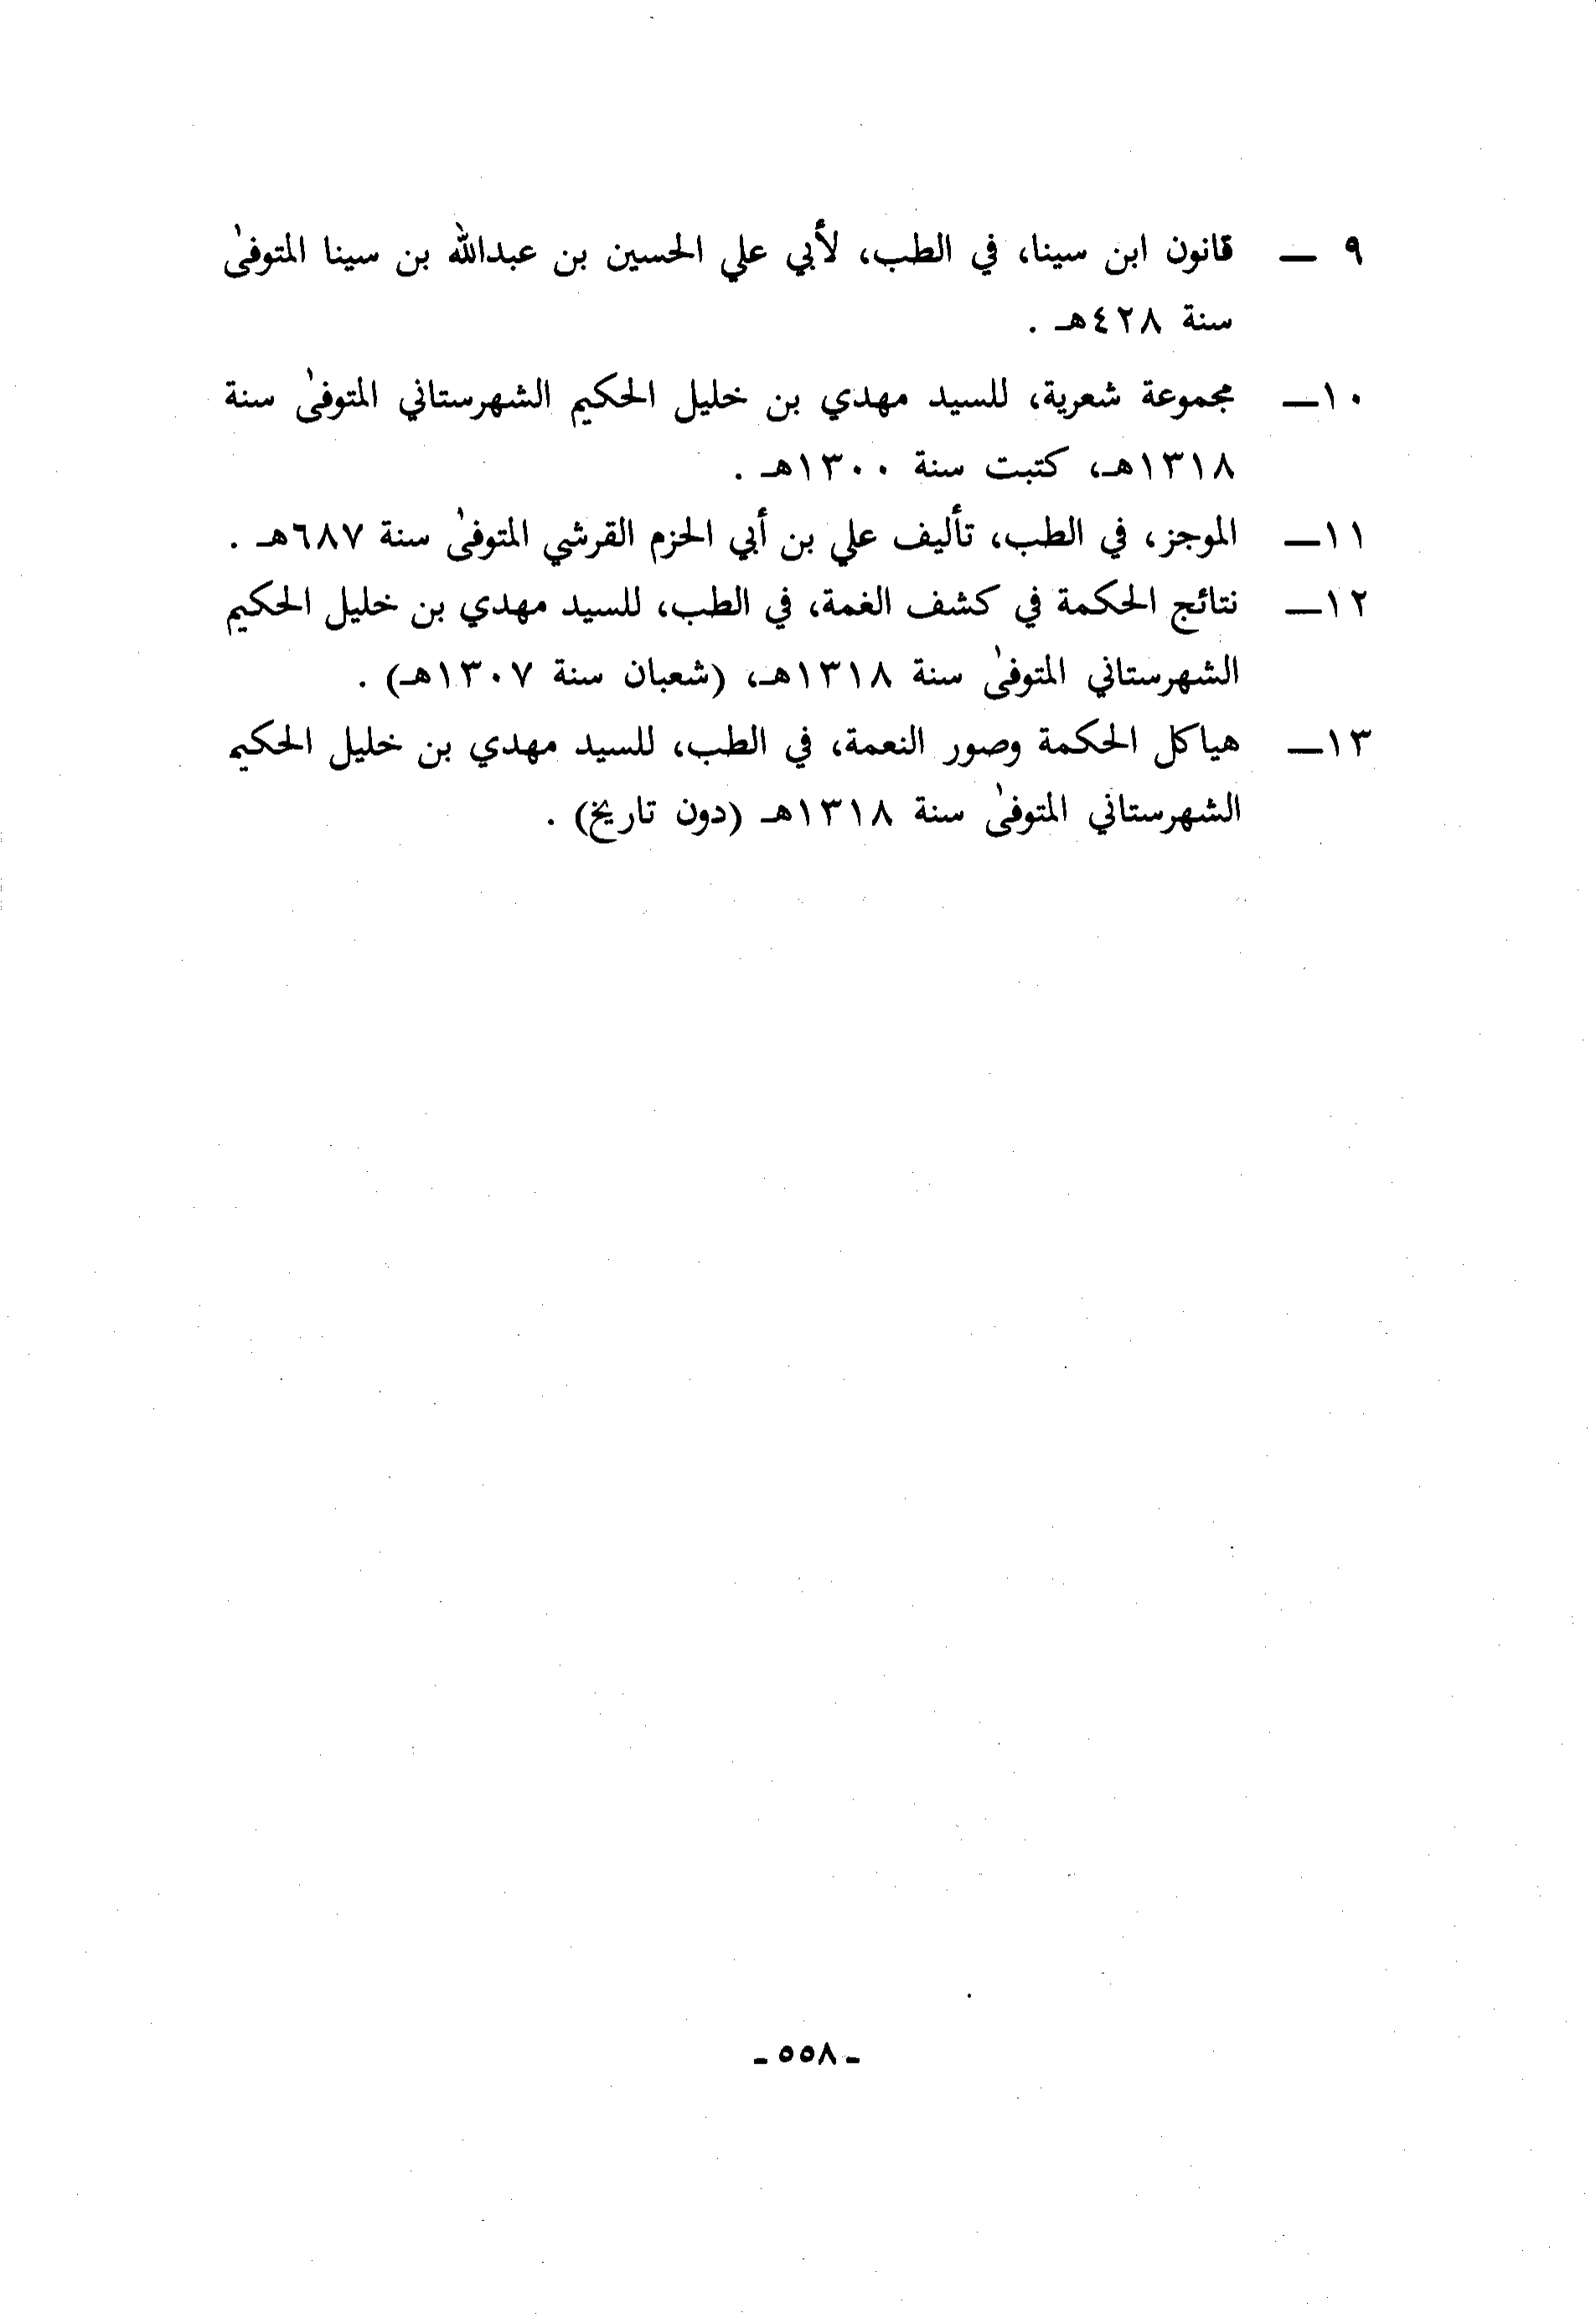 ٩ — قانون ابن سينا، في الطب، لأبي علي الحسين بن عبدالله بن سينا المتوفىٰ
سنة ٤٢٨هـ .
١٠— مجموعة شعرية، للسيد مهدي بن خليل الحكيم الشهرستاني المتوفىٰ سنة
١٣١٨هـ، كتبت سنة ١٣٠٠هـ .
١١— الموجز، في الطب، تأليف علي بن أبي الحزم القرشي المتوفىٰ سنة ٦٨٧هـ .
١٢— نتائج الحكمة في كشف الغمة، في الطب، للسيد مهدي بن خليل الحكيم
الشهرستاني المتوفىٰ سنة ١٣١٨هـ، (شعبان سنة ١٣٠٧هـ) .
١٣— هياكل الحكمة وصور النعمة، في الطب، للسيد مهدي بن خليل الحكيم
الشهرستاني المتوفىٰ سنة ١٣١٨هـ (دون تاريخ) .
- ٥٥٨ -